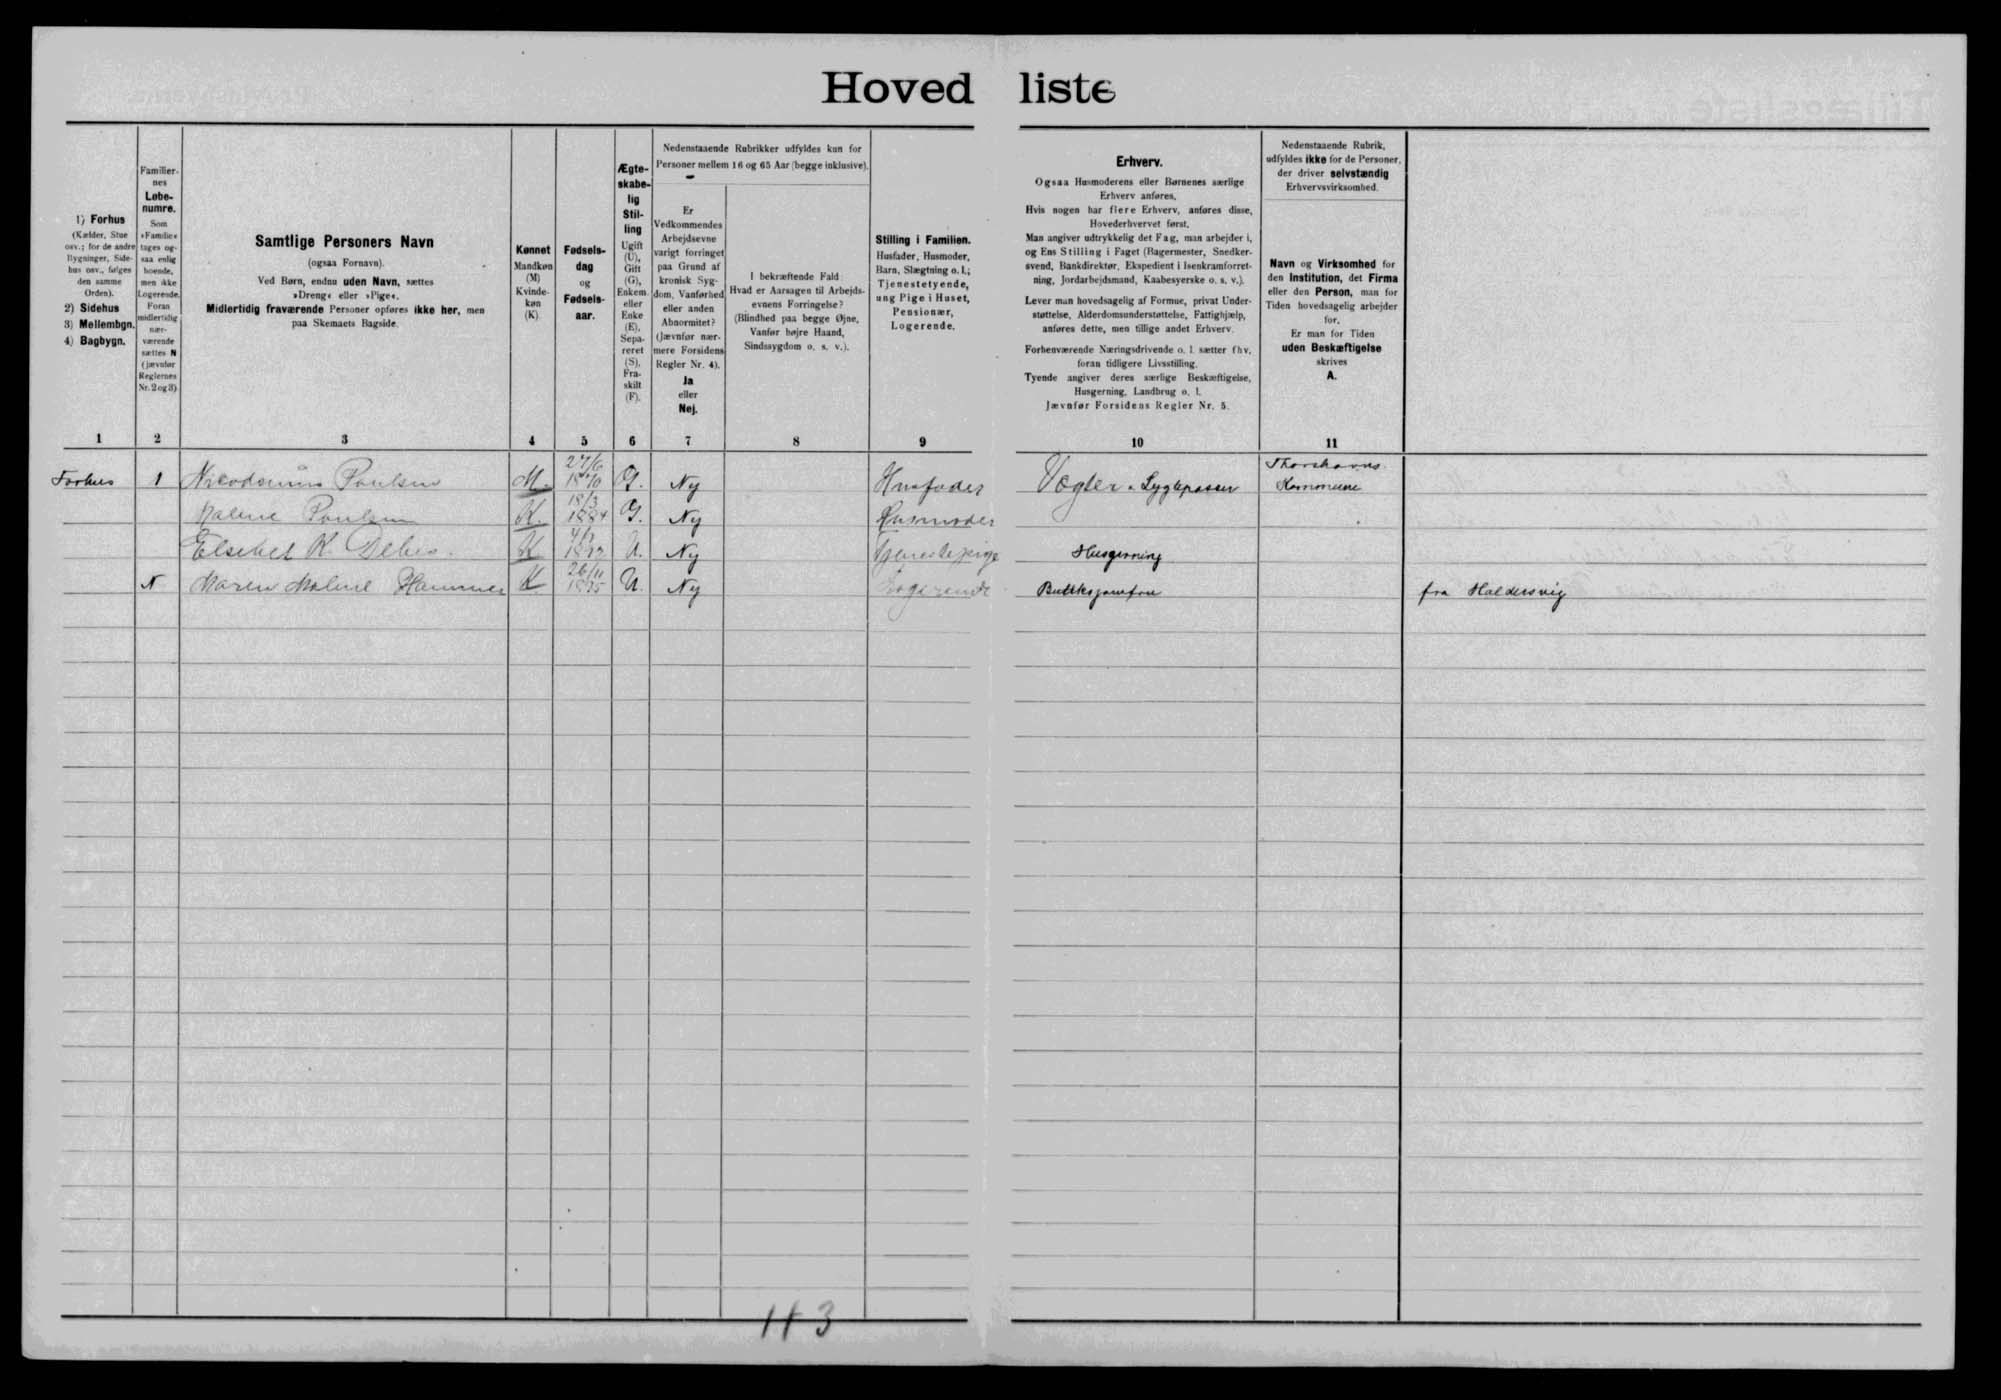 Hovedliste
1) Forhus
(Kælder, Stue
osv.; for de andre
Bygninger, Side-
hus osv., følges
den samme
Orden).
2) Sidehus
3) Mellembgn.
4) Bagbygn.
1
Familier-
nes
Løbe-
numre.
Som
»Familie«
tages og-
saa enlig
boende,
men ikke
Logerende.
Foran
midlertidig
nær-
værende
sættes N
(jævnfør
Reglernes
Nr. 2 og 3)
2
Samtlige Personers Navn
(ogsaa Fornavn).
Ved Børn, endnu uden Navn, sættes
»Dreng« eller »Pige«.
Midlertidig fraværende Personer opføres ikke her, men
paa Skemaets Bagside.
3
Kønnet
Mandkøn
(M)
Kvinde-
køn
(K).
4
Fødsels-
dag
og
Fødsels-
aar.
5
Ægte-
skabe-
lig
Stil-
ling
Ugift
(U),
Gift
(G),
Enkem.
eller
Enke
(E),
Sepa-
reret
(S),
Fra-
skilt
(F).
6
Nedenstaaende Rubrikker udfyldes kun for
Personer mellem 16 og 65 Aar (begge inklusive).
Er
Vedkommendes
Arbejdsevne
varigt forringet
paa Grund af
kronisk Syg-
dom, Vanførhed
eller anden
Abnormitet?
(Jævnfør nær-
mere Forsidens
Regler Nr. 4).
Ja
eller
Nej.
7
I bekræftende Fald:
Hvad er Aarsagen til Arbejds-
evnens Forringelse?
(Blindhed paa begge Øjne,
Vanfør højre Haand,
Sindssygdom o. s. v.).
8
Stilling i Familien.
Husfader, Husmoder,
Barn, Slægtning o. l.;
Tjenestetyende,
ung Pige i Huset,
Pensionær,
Logerende.
9
Erhverv.
Ogsaa Husmoderens eller Børnenes særlige
Erhverv anføres.
Hvis nogen har flere Erhverv, anføres disse,
Hovederhvervet først.
Man angiver udtrykkelig det Fag, man arbejder i,
og Ens Stilling i Faget (Bagermester, Snedker-
svend, Bankdirektør, Ekspedient i Isenkramforret-
ning, Jordarbejdsmand, Kaabesyerske o. s. v.).
Lever man hovedsagelig af Formue, privat Under-
støttelse, Alderdomsunderstøttelse, Fattighjælp,
anføres dette, men tillige andet Erhverv.
Forhenværende Næringsdrivende o. l. sætter fhv.
foran tidligere Livsstilling.
Tyende angiver deres særlige Beskæftigelse,
Husgerning, Landbrug o. l.
Jævnfør Forsidens Regler Nr. 5.
10
Nedenstaaende Rubrik,
udfyldes ikke for de Personer,
der driver selvstændig
Erhvervsvirksomhed.
Navn og Virksomhed for
den Institution, det Firma
eller den Person, man for
Tiden hovedsagelig arbejder
for.
Er man for Tiden
uden Beskæftigelse
skrives
A.
11
Forhus 1 Nicodemus Poulsen M. 27/6 1870 G. Nej Husfader Vægter & Lygtepasser Thorshavns Kommune
Malene Poulsen K. 18/3 1884 G. Nej Husmoder
Elsebet K. Debes. K U. Nej Tjenestepige Husgerning
N Maren Malene Hammer K 26/11 U. Nej Logerende Butiksjomfru fra Haldersvig
113